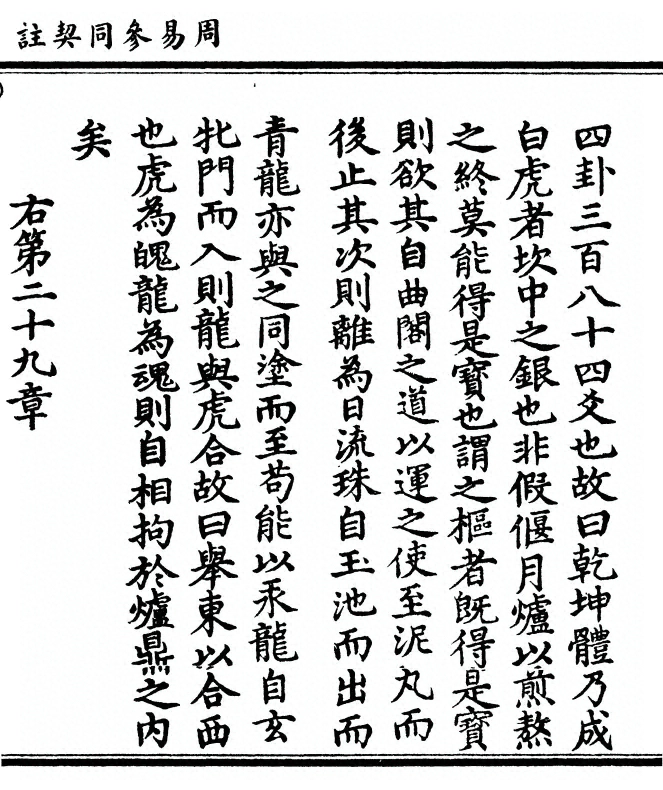 周易參同契註
四卦三百八十四爻也故曰乾坤體乃成
白虎者坎中之銀也非假偃月爐以煎熬
之終莫能得是寶也謂之樞者既得是寶
則欲其自曲閣之道以運之使至泥丸而
後止其次則離為日流珠自玉池而出而
青龍亦與之同塗而至苟能以汞龍自玄
牝門而入則龍與虎合故曰舉東以合西
也虎為魄龍為魂則自相拘於爐鼎之内
矣
右第二十九章